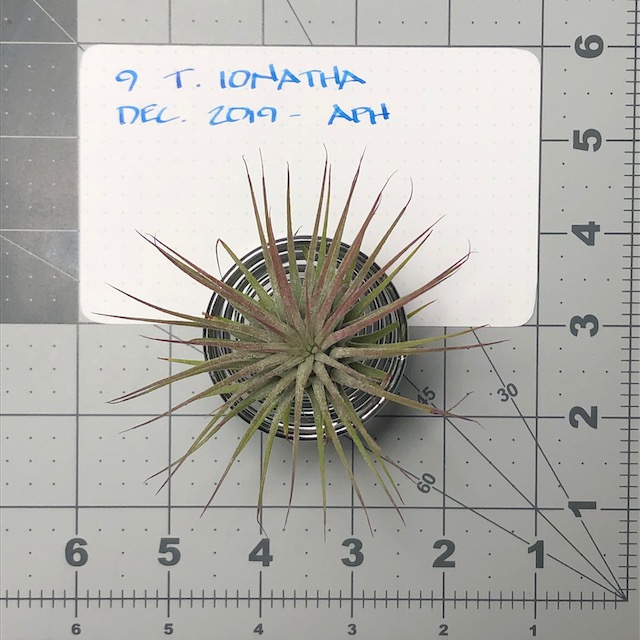 9 T. IONATHA
DEC. 2019 - APH
6
5
4
3
2
1
45
30
60
6 5 4 3 2 1
6 5 4 3 2 1